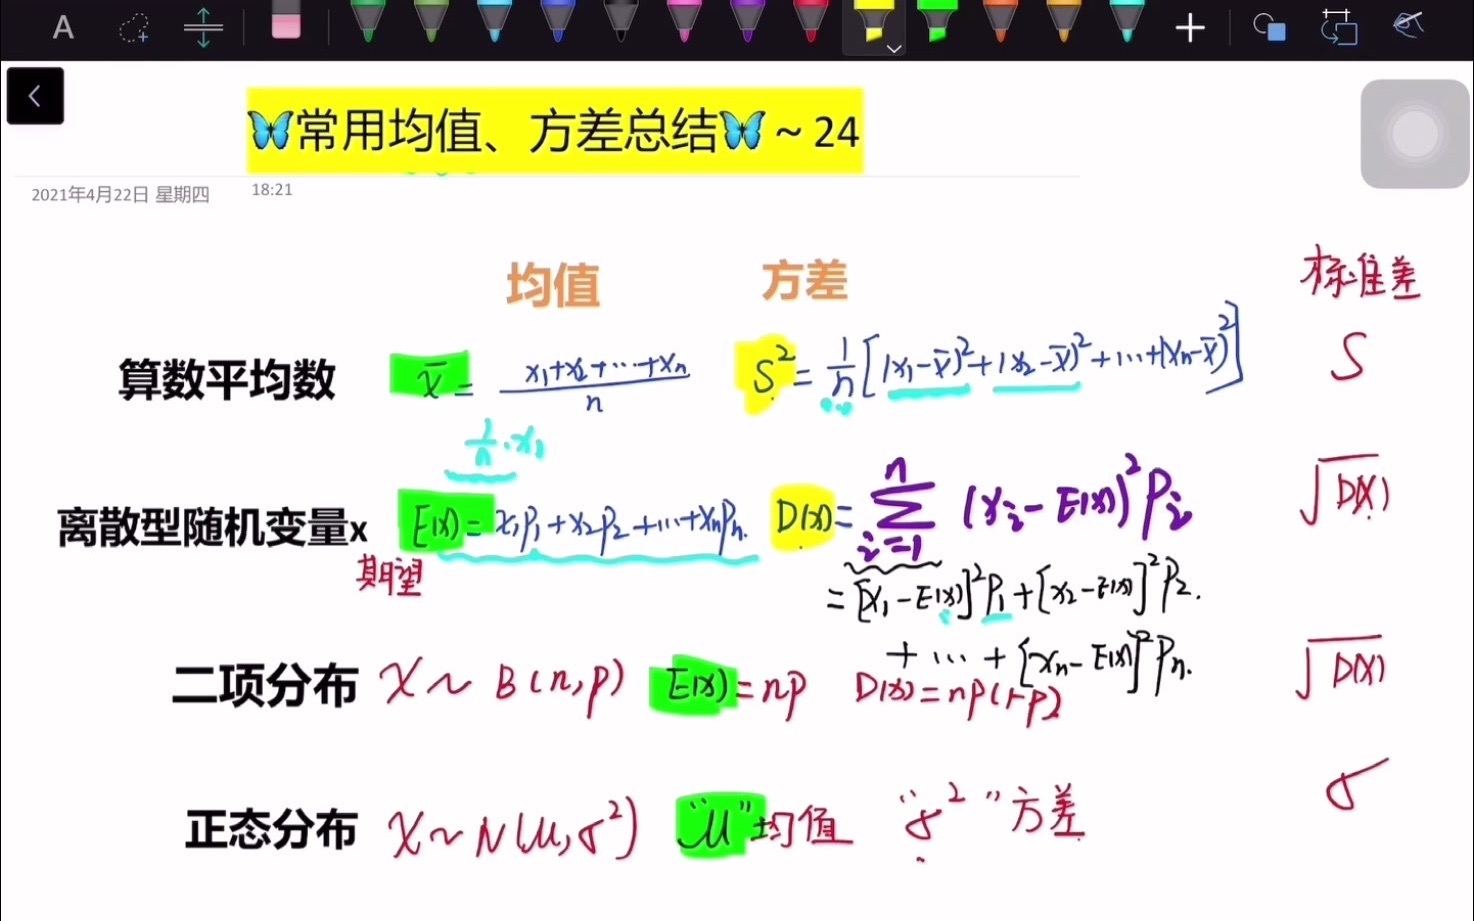 A
🦋常用均值、方差总结🦋 ~ 24
2021年4月22日 星期四 18:21
均值 方差 标准差
算数平均数 x̄ = (x₁+x₂+⋯+xₙ)/n S² = 1/n[(x₁-x̄)²+(x₂-x̄)²+⋯+(xₙ-x̄)²] S
1/n·x₁
离散型随机变量x E(x)= x₁p₁+x₂p₂+⋯+xₙpₙ. D(x)= ∑ᵢ₌₁ⁿ (xᵢ-E(x))²Pᵢ √D(X)
期望
= [x₁-E(x)]²P₁+[x₂-E(x)]²P₂.
+ ⋯ + [xₙ-E(x)]²Pₙ.
二项分布 X~B(n,p) E(x)=np D(x)=np(1-p) √D(X)
正态分布 X~N(μ,σ²) “μ”均值 “σ²”方差 σ